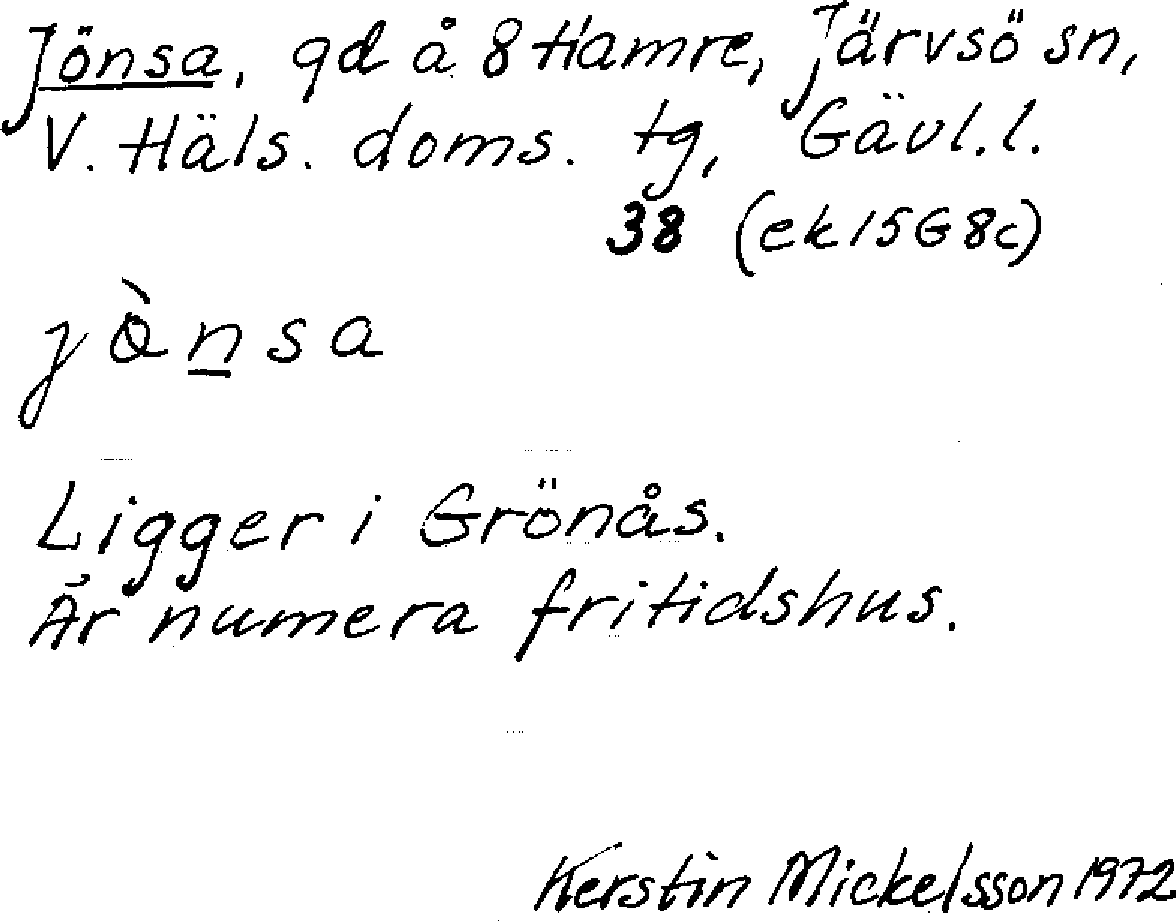 Jönsa, gd å 8 Hamre, Järvsö sn,
V. Häls. doms. tg, Gävl.l.
38 (ek 15G 8c)
jö̀n̲sa
Ligger i Grönås.
Är numera fritidshus.
Kerstin Mickelsson 1972